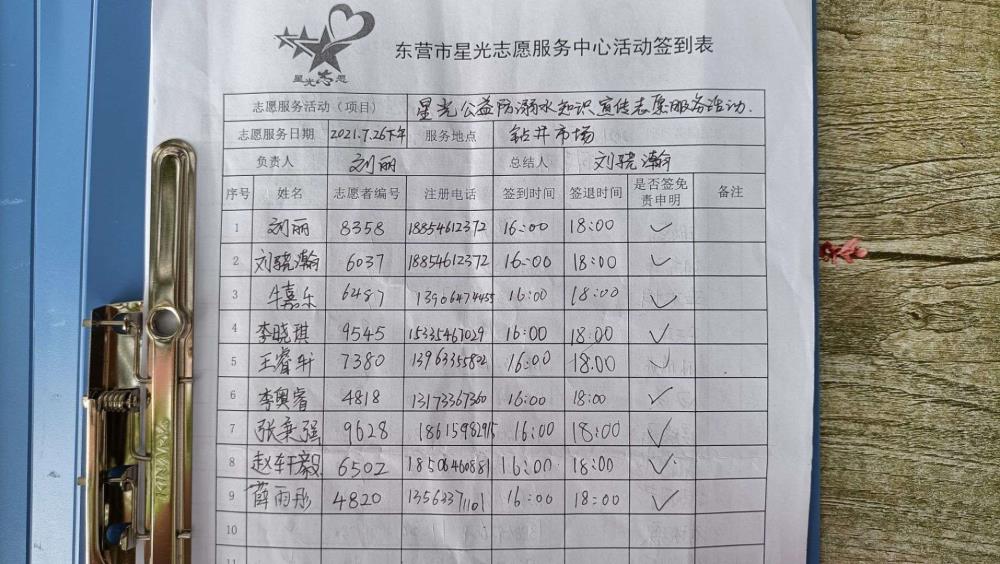 星光志愿
东营市星光志愿服务中心活动签到表
志愿服务活动（项目） 星光公益防溺水知识宣传志愿服务活动.
志愿服务日期 2021.7.26下午 服务地点 钻井市场
负责人 刘丽 总结人 刘骁瀚
序号 姓名 志愿者编号 注册电话 签到时间 签退时间 是否签免责申明 备注
1 刘丽 8358 18854612372 16:00 18:00 ✓
2 刘骁瀚 6037 18854612372 16:00 18:00 ✓
3 牛嘉乐 6487 13906474455 16:00 18:00 ✓
4 李晓琪 9545 15335467029 16:00 18:00 ✓
5 王睿轩 7380 13963355802 16:00 18:00 ✓
6 李奥睿 4818 13173367360 16:00 18:00 ✓
7 张秉强 9628 18615982915 16:00 18:00 ✓
8 赵轩毅 6502 18506460881 16:00 18:00 ✓
9 薛雨彤 4820 13563371101 16:00 18:00 ✓
10